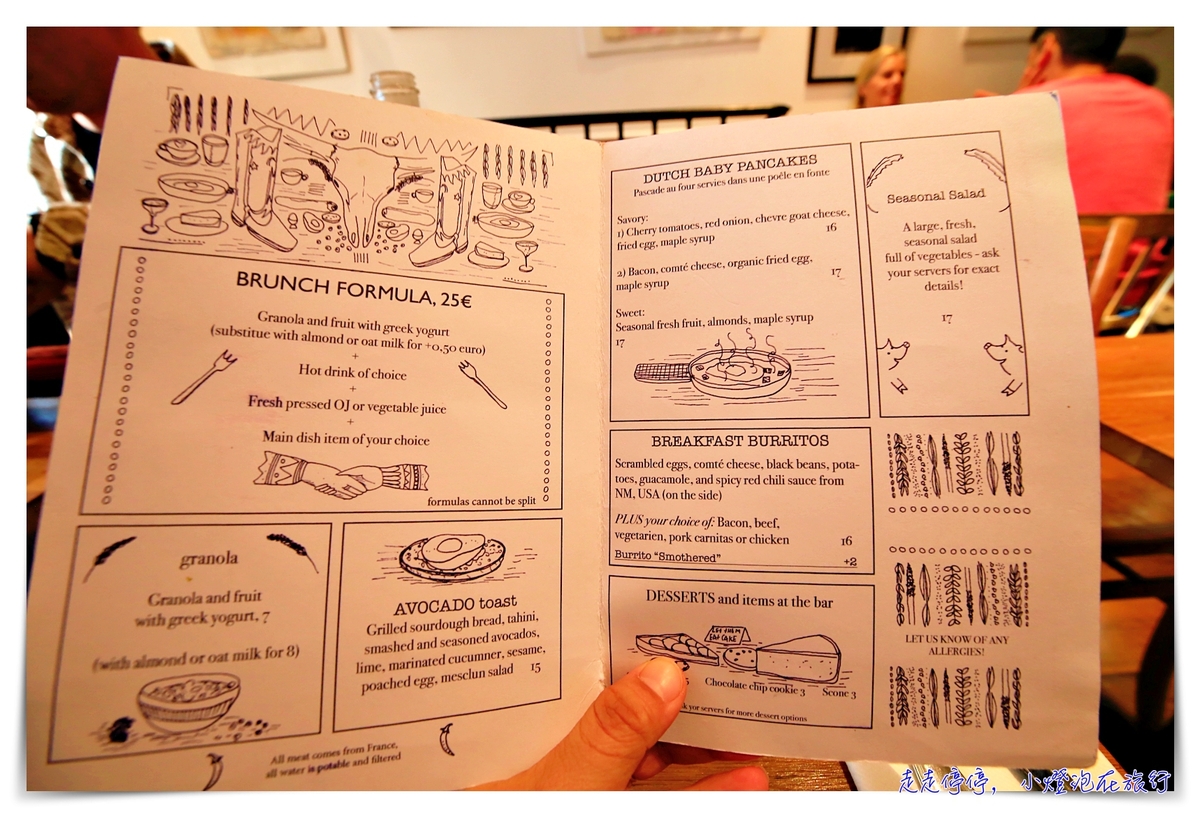 BRUNCH FORMULA, 25€
Granola and fruit with greek yogurt
(substitue with almond or oat milk for +0,50 euro)
+
Hot drink of choice
+
Fresh pressed OJ or vegetable juice
+
Main dish item of your choice
formulas cannot be split
granola
Granola and fruit
with greek yogurt, 7
(with almond or oat milk for 8)
AVOCADO toast
Grilled sourdough bread, tahini,
smashed and seasoned avocados,
lime, marinated cucumner, sesame,
poached egg, mesclun salad 15
All meat comes from France,
all water is potable and filtered
DUTCH BABY PANCAKES
Pascade au four servies dans une poêle en fonte
Savory:
1) Cherry tomatoes, red onion, chevre goat cheese,
fried egg, maple syrup 16
2) Bacon, comté cheese, organic fried egg,
maple syrup 17
Sweet:
Seasonal fresh fruit, almonds, maple syrup
17
BREAKFAST BURRITOS
Scrambled eggs, comté cheese, black beans, pota-
toes, guacamole, and spicy red chili sauce from
NM, USA (on the side)
PLUS your choice of: Bacon, beef,
vegetarien, pork carnitas or chicken 16
Burrito "Smothered" +2
DESSERTS and items at the bar
LET THEM
EAT CAKE
5 Chocolate chip cookie 3 Scone 3
yor servers for more dessert options
Seasonal Salad
A large, fresh,
seasonal salad
full of vegetables - ask
your servers for exact
details!
17
LET US KNOW OF ANY
ALLERGIES!
走走停停，小燈泡在旅行